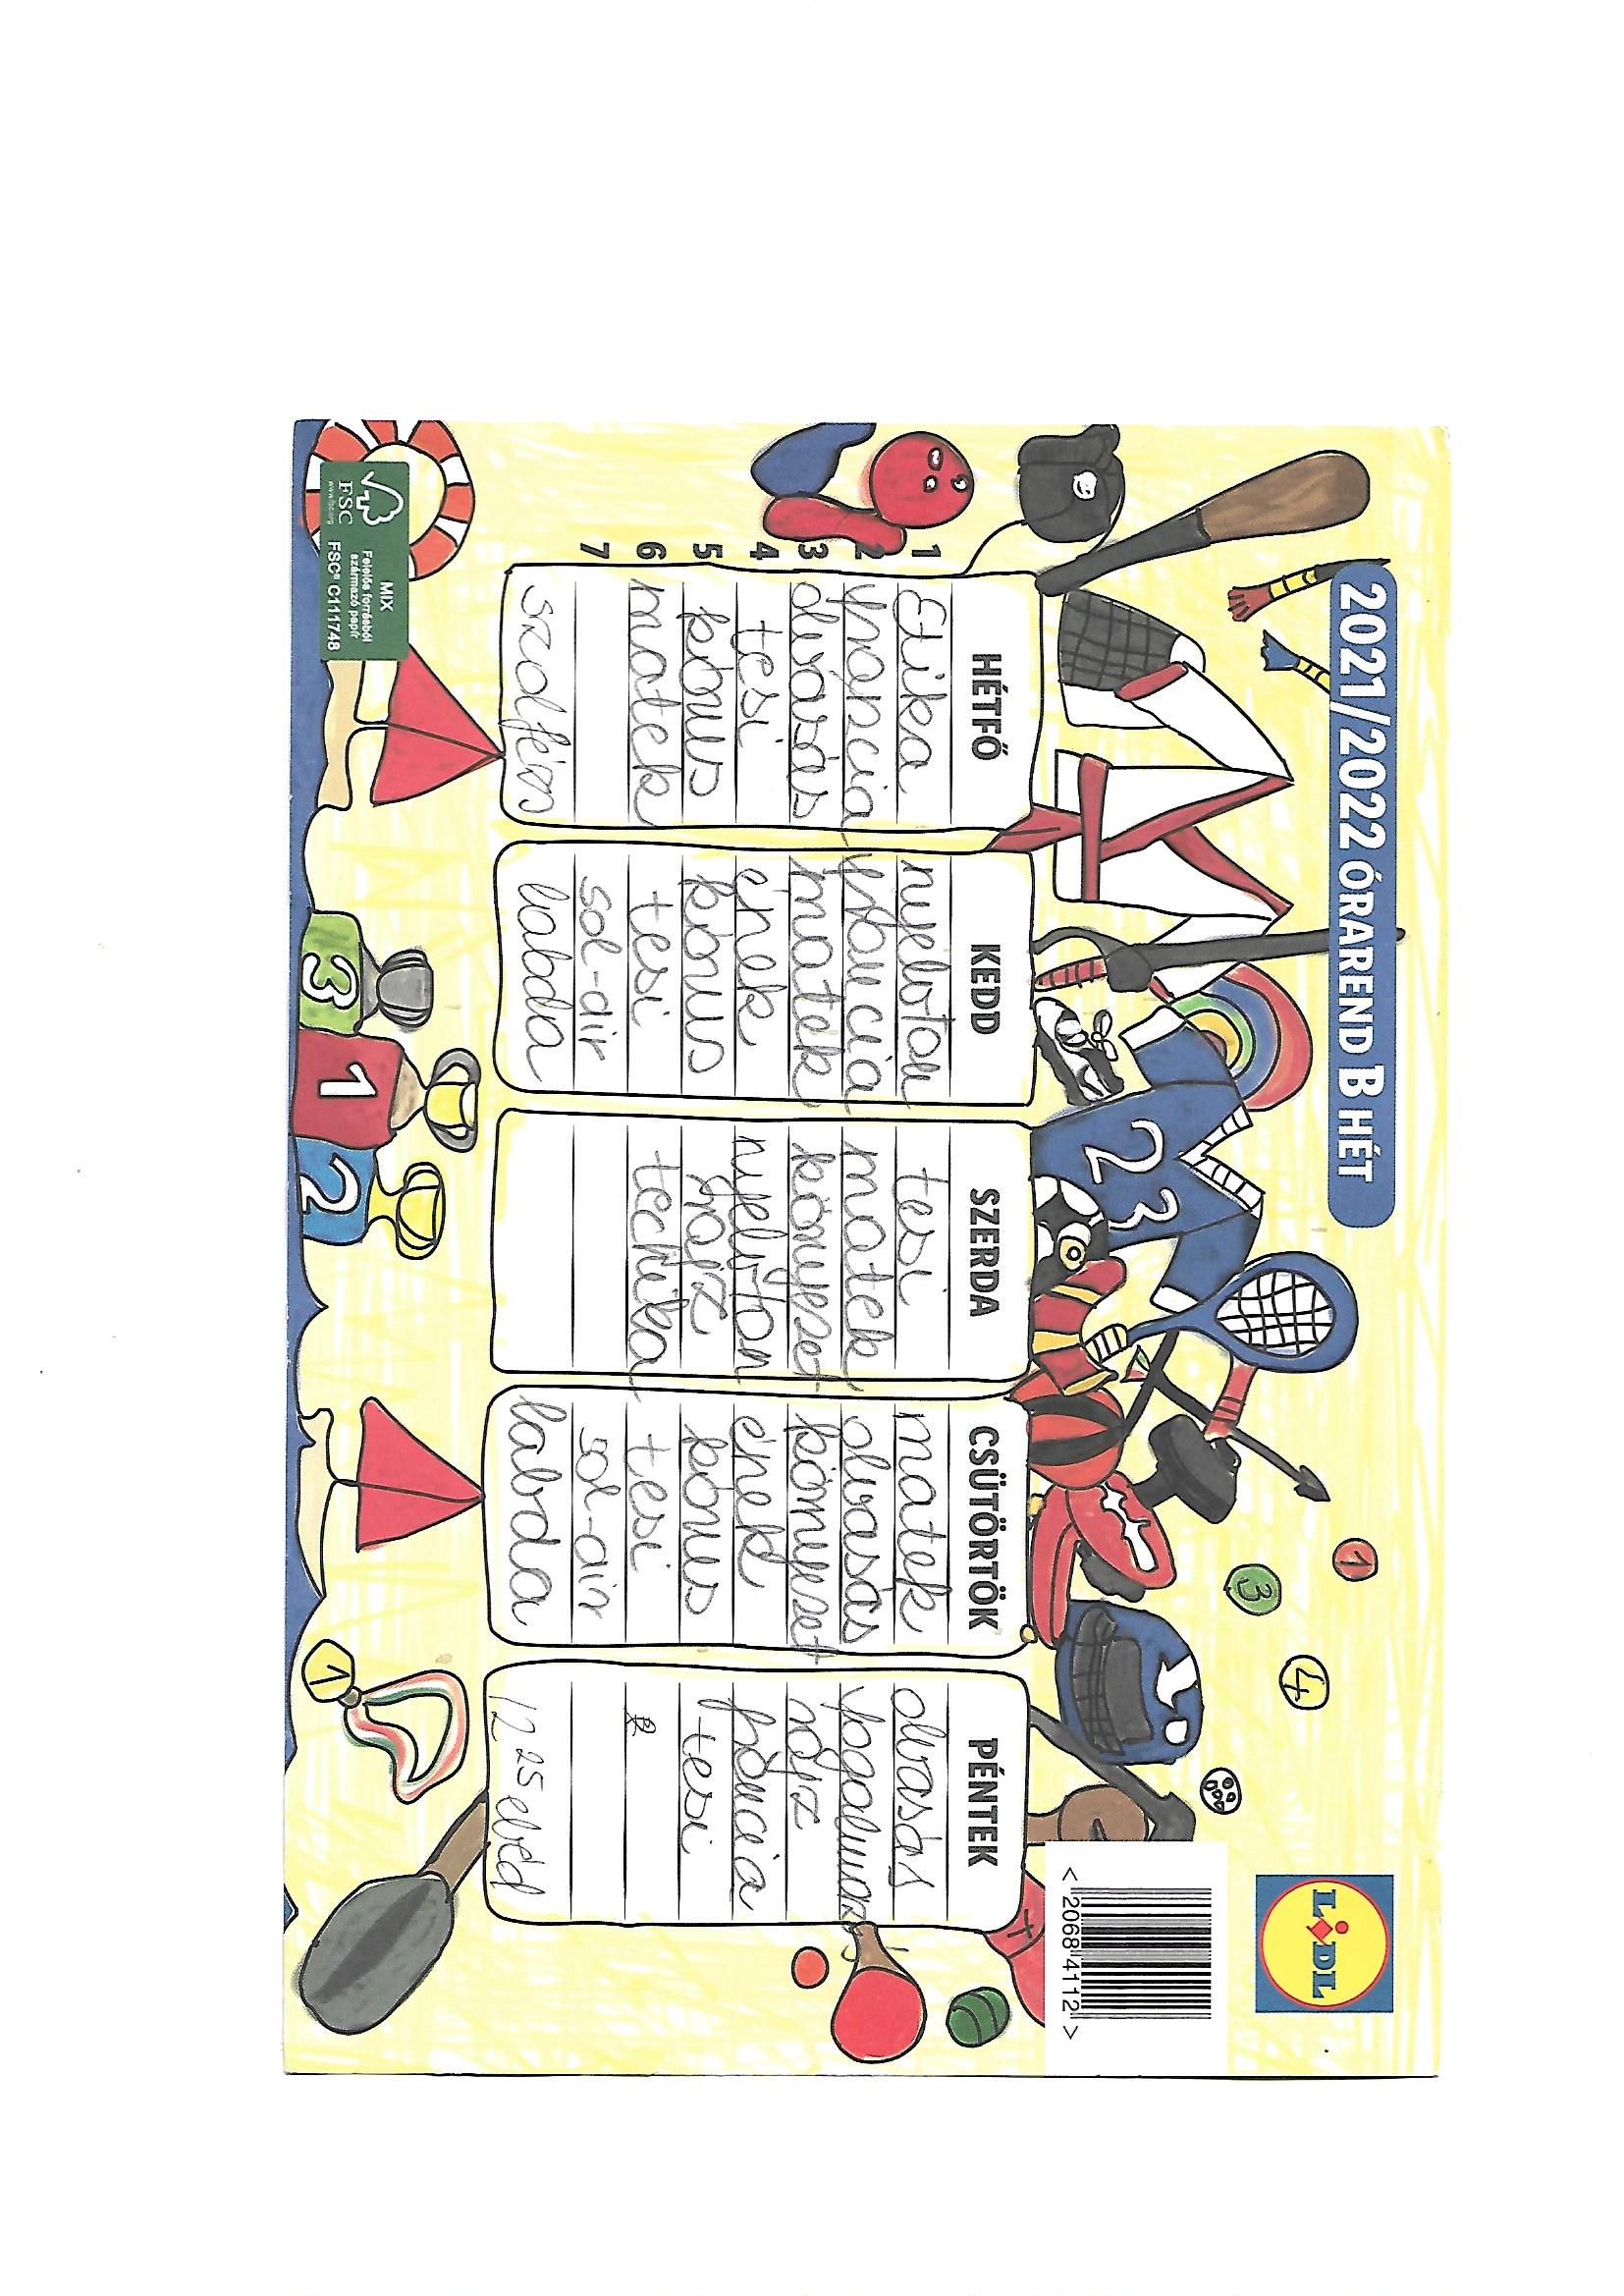 2021/2022 ÓRAREND B HÉT
LIDL
< 20684112 >
HÉTFŐ KEDD SZERDA CSÜTÖRTÖK PÉNTEK
1 Etika nyelvtan tesi matek olvasás
2 matek olvasás fogalmaz
3 olvasás matek környezet környezet rajz
4 tesi ének nyelvtan ének
5 kórus kórus rajz kórus tesi
6 matek tesi technika tesi
7 sol-air sol-air
szolfézs labda labda 12 25 ebéd
23
3 1 2
1
1
3
4
FSC
www.fsc.org
MIX
Felelős forrásból
származó papír
FSC® C111748